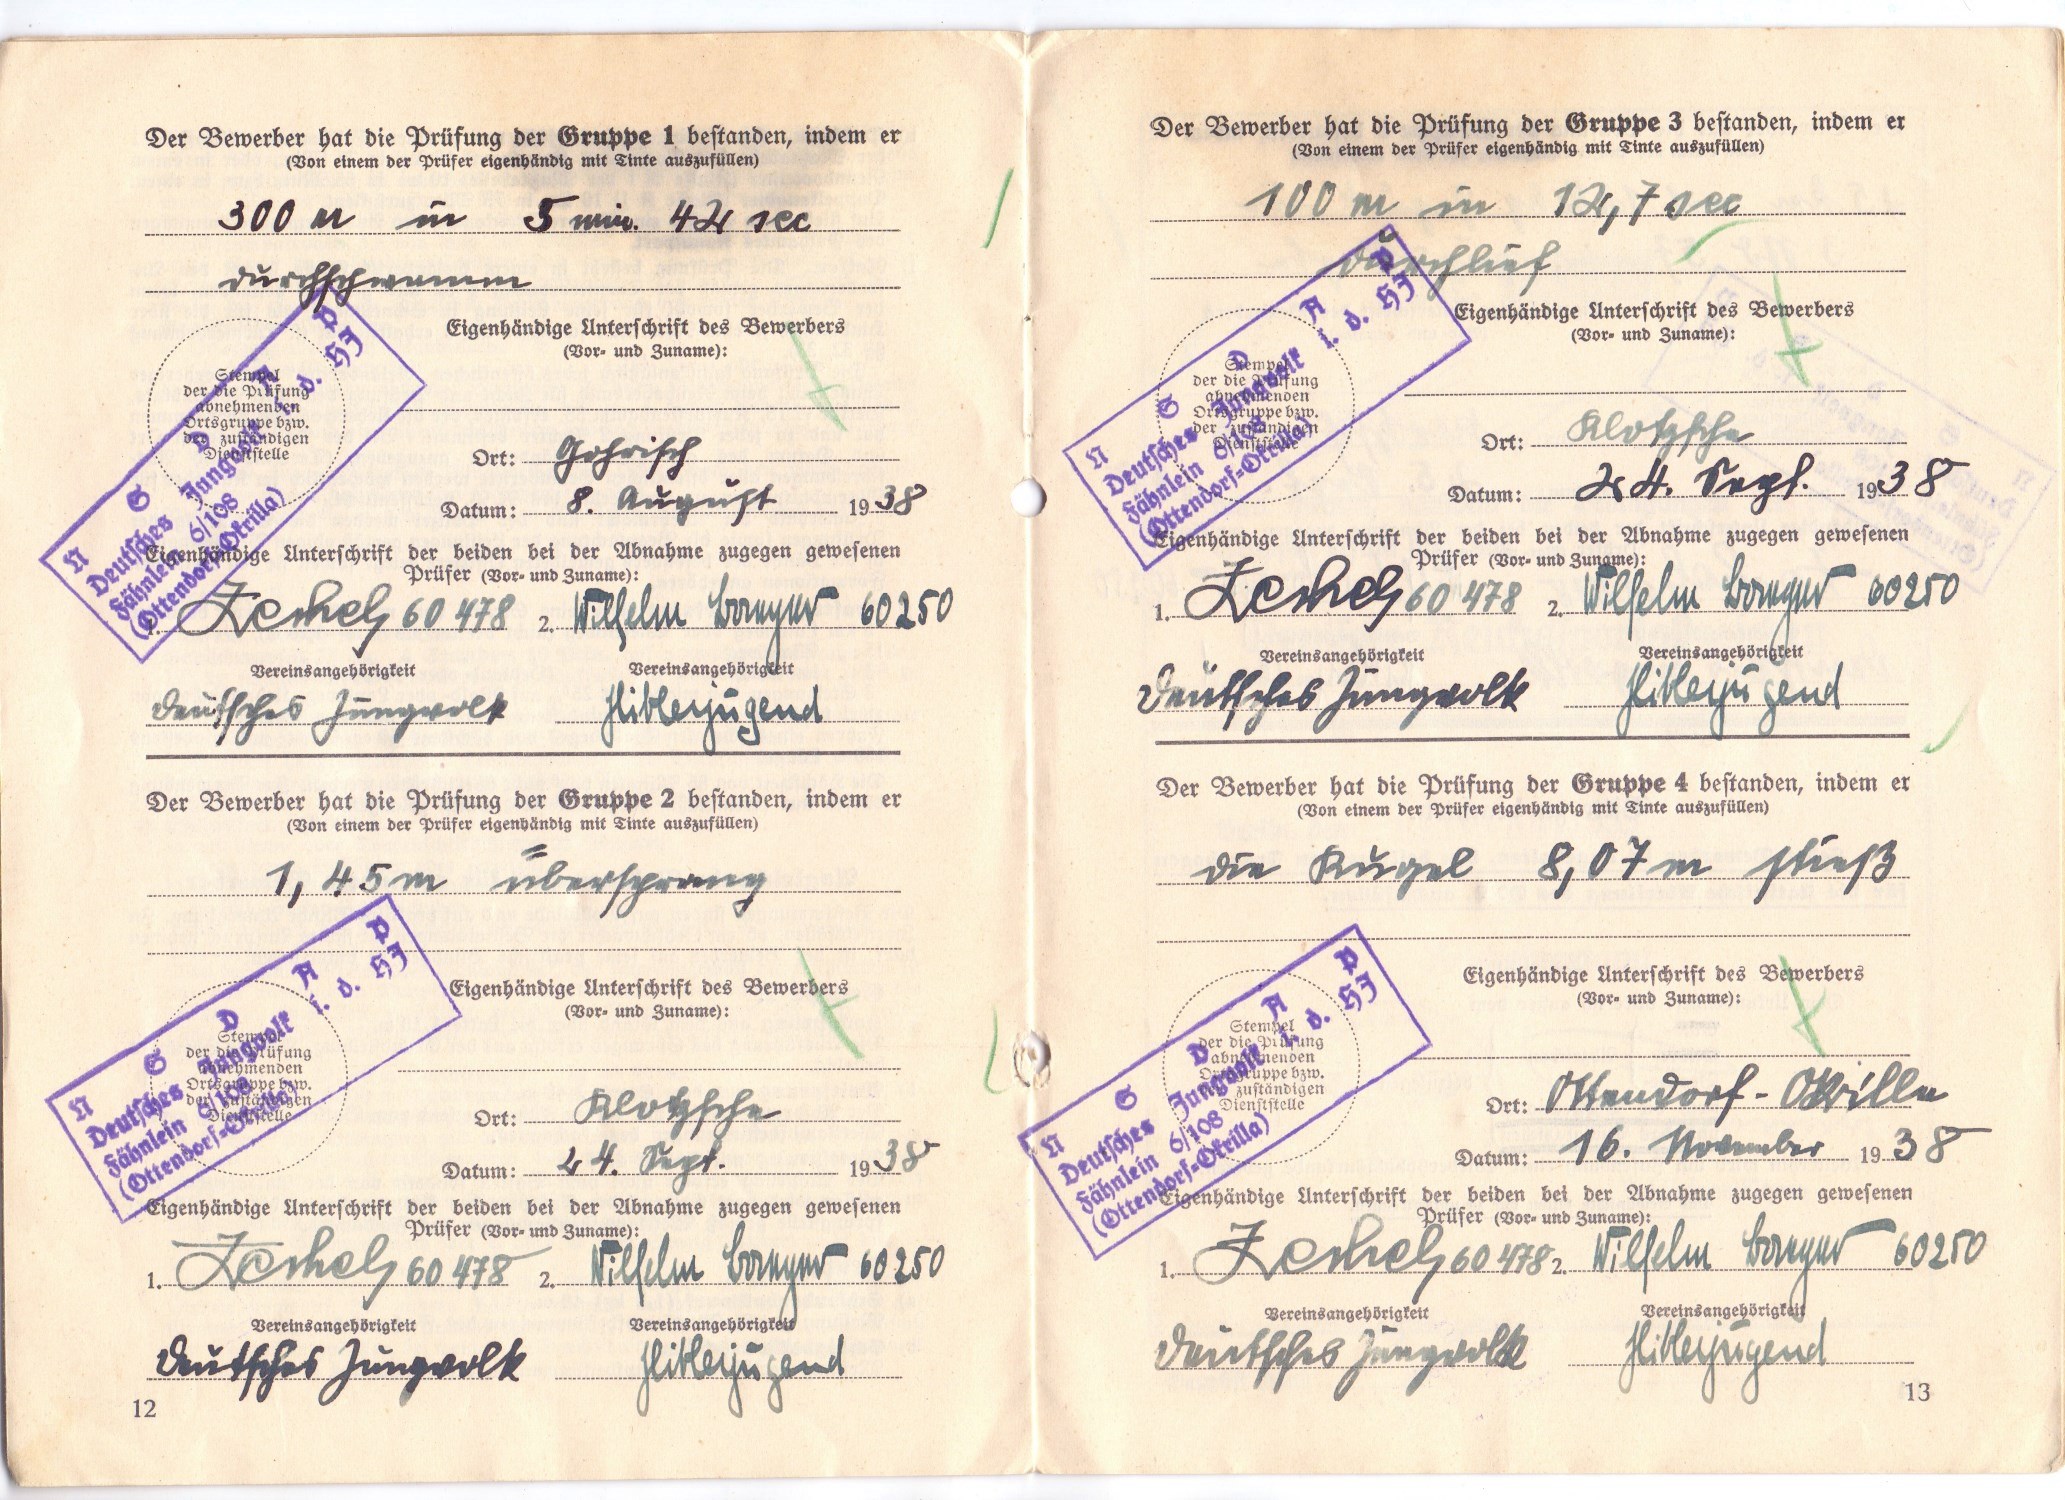 Der Bewerber hat die Prüfung der Gruppe 1 bestanden, indem er
(Von einem der Prüfer eigenhändig mit Tinte auszufüllen)
300 m in 5 min. 42 sec
durchschwamm
Eigenhändige Unterschrift des Bewerbers
(Vor- und Zuname):
Stempel
der die Prüfung
abnehmenden
Ortsgruppe bzw.
der zuständigen
Dienststelle
N S D A P
Deutsches Jungvolk i. d. HJ
Fähnlein 6/108
(Ottendorf-Okrilla)
Ort: Gohrisch
Datum: 8. August 1938
Eigenhändige Unterschrift der beiden bei der Abnahme zugegen gewesenen
Prüfer (Vor- und Zuname):
1. 60 478 2. Wilhelm 60250
Vereinsangehörigkeit Vereinsangehörigkeit
Deutsches Jungvolk Hitlerjugend
Der Bewerber hat die Prüfung der Gruppe 2 bestanden, indem er
(Von einem der Prüfer eigenhändig mit Tinte auszufüllen)
1,45 m übersprang
Eigenhändige Unterschrift des Bewerbers
(Vor- und Zuname):
Stempel
der die Prüfung
abnehmenden
Ortsgruppe bzw.
der zuständigen
Dienststelle
N S D A P
Deutsches Jungvolk i. d. HJ
Fähnlein 6/108
(Ottendorf-Okrilla)
Ort: Klotzsche
Datum: 24. Sept. 1938
Eigenhändige Unterschrift der beiden bei der Abnahme zugegen gewesenen
Prüfer (Vor- und Zuname):
1. 60 478 2. Wilhelm 60250
Vereinsangehörigkeit Vereinsangehörigkeit
Deutsches Jungvolk Hitlerjugend
12
Der Bewerber hat die Prüfung der Gruppe 3 bestanden, indem er
(Von einem der Prüfer eigenhändig mit Tinte auszufüllen)
100 m in 12,7 sec
durchlief
Eigenhändige Unterschrift des Bewerbers
(Vor- und Zuname):
Stempel
der die Prüfung
abnehmenden
Ortsgruppe bzw.
der zuständigen
Dienststelle
N S D A P
Deutsches Jungvolk i. d. HJ
Fähnlein 6/108
(Ottendorf-Okrilla)
Ort: Klotzsche
Datum: 24. Sept. 1938
Eigenhändige Unterschrift der beiden bei der Abnahme zugegen gewesenen
Prüfer (Vor- und Zuname):
1. 60 478 2. Wilhelm 60250
Vereinsangehörigkeit Vereinsangehörigkeit
Deutsches Jungvolk Hitlerjugend
Der Bewerber hat die Prüfung der Gruppe 4 bestanden, indem er
(Von einem der Prüfer eigenhändig mit Tinte auszufüllen)
die Kugel 8,07 m stieß
Eigenhändige Unterschrift des Bewerbers
(Vor- und Zuname):
Stempel
der die Prüfung
abnehmenden
Ortsgruppe bzw.
der zuständigen
Dienststelle
N S D A P
Deutsches Jungvolk i. d. HJ
Fähnlein 6/108
(Ottendorf-Okrilla)
Ort: Ottendorf-Okrilla
Datum: 16. November 1938
Eigenhändige Unterschrift der beiden bei der Abnahme zugegen gewesenen
Prüfer (Vor- und Zuname):
1. 60 478 2. Wilhelm 60250
Vereinsangehörigkeit Vereinsangehörigkeit
Deutsches Jungvolk Hitlerjugend
13